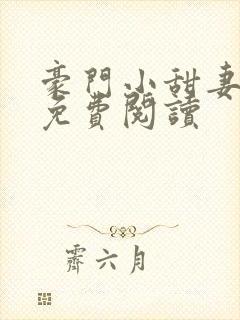 豪門小甜妻
免費閱讀
霽六月